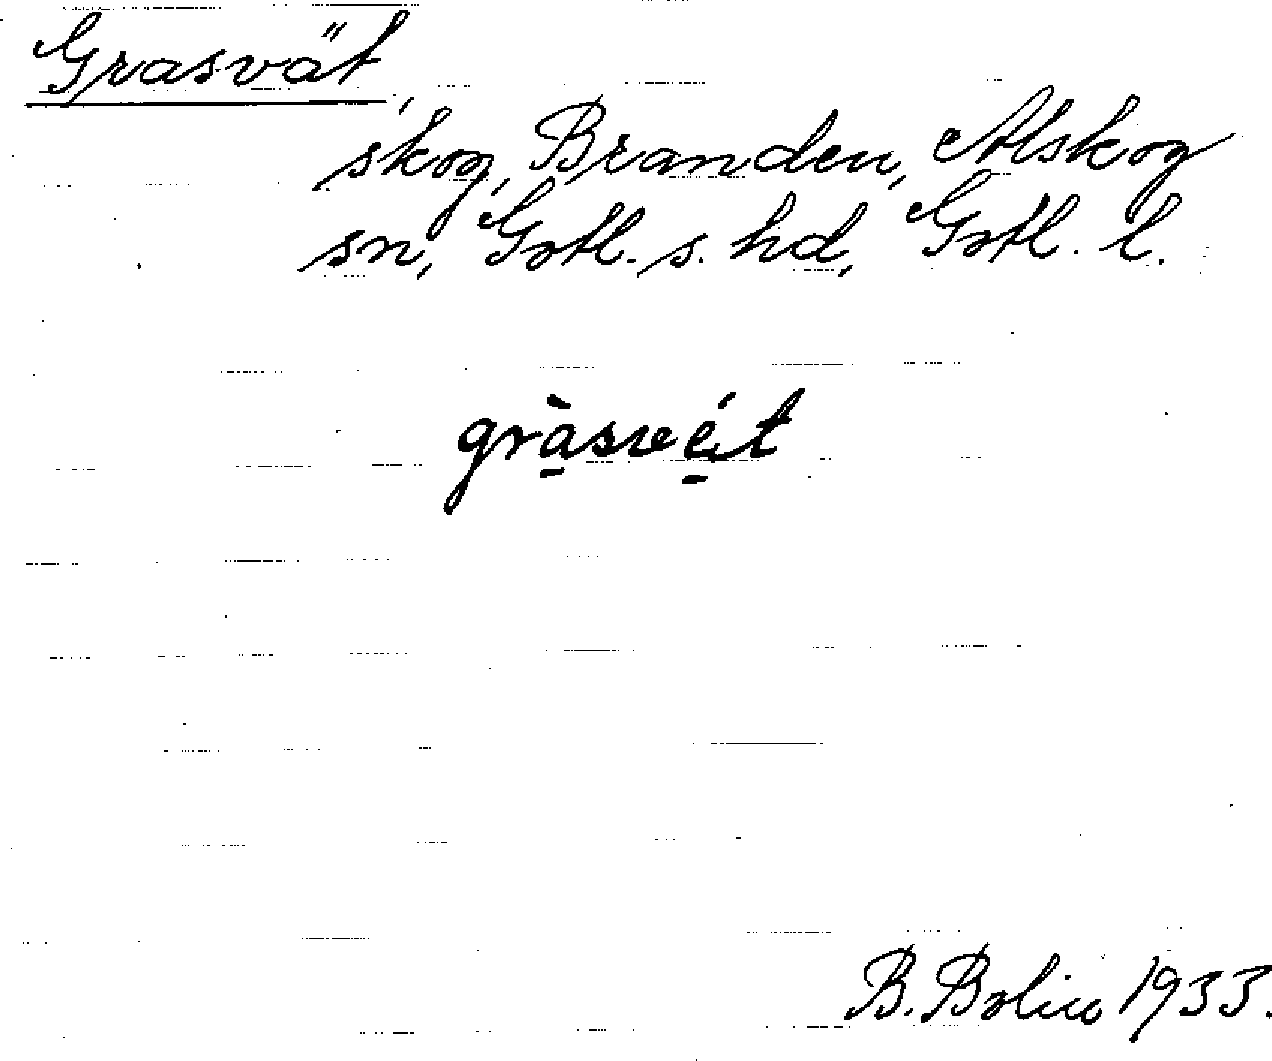 Grasvät,
skog, Branden, Alskog
sn, Gotl. s. hd, Gotl. l.
gràsvét
B. Bolin 1933.